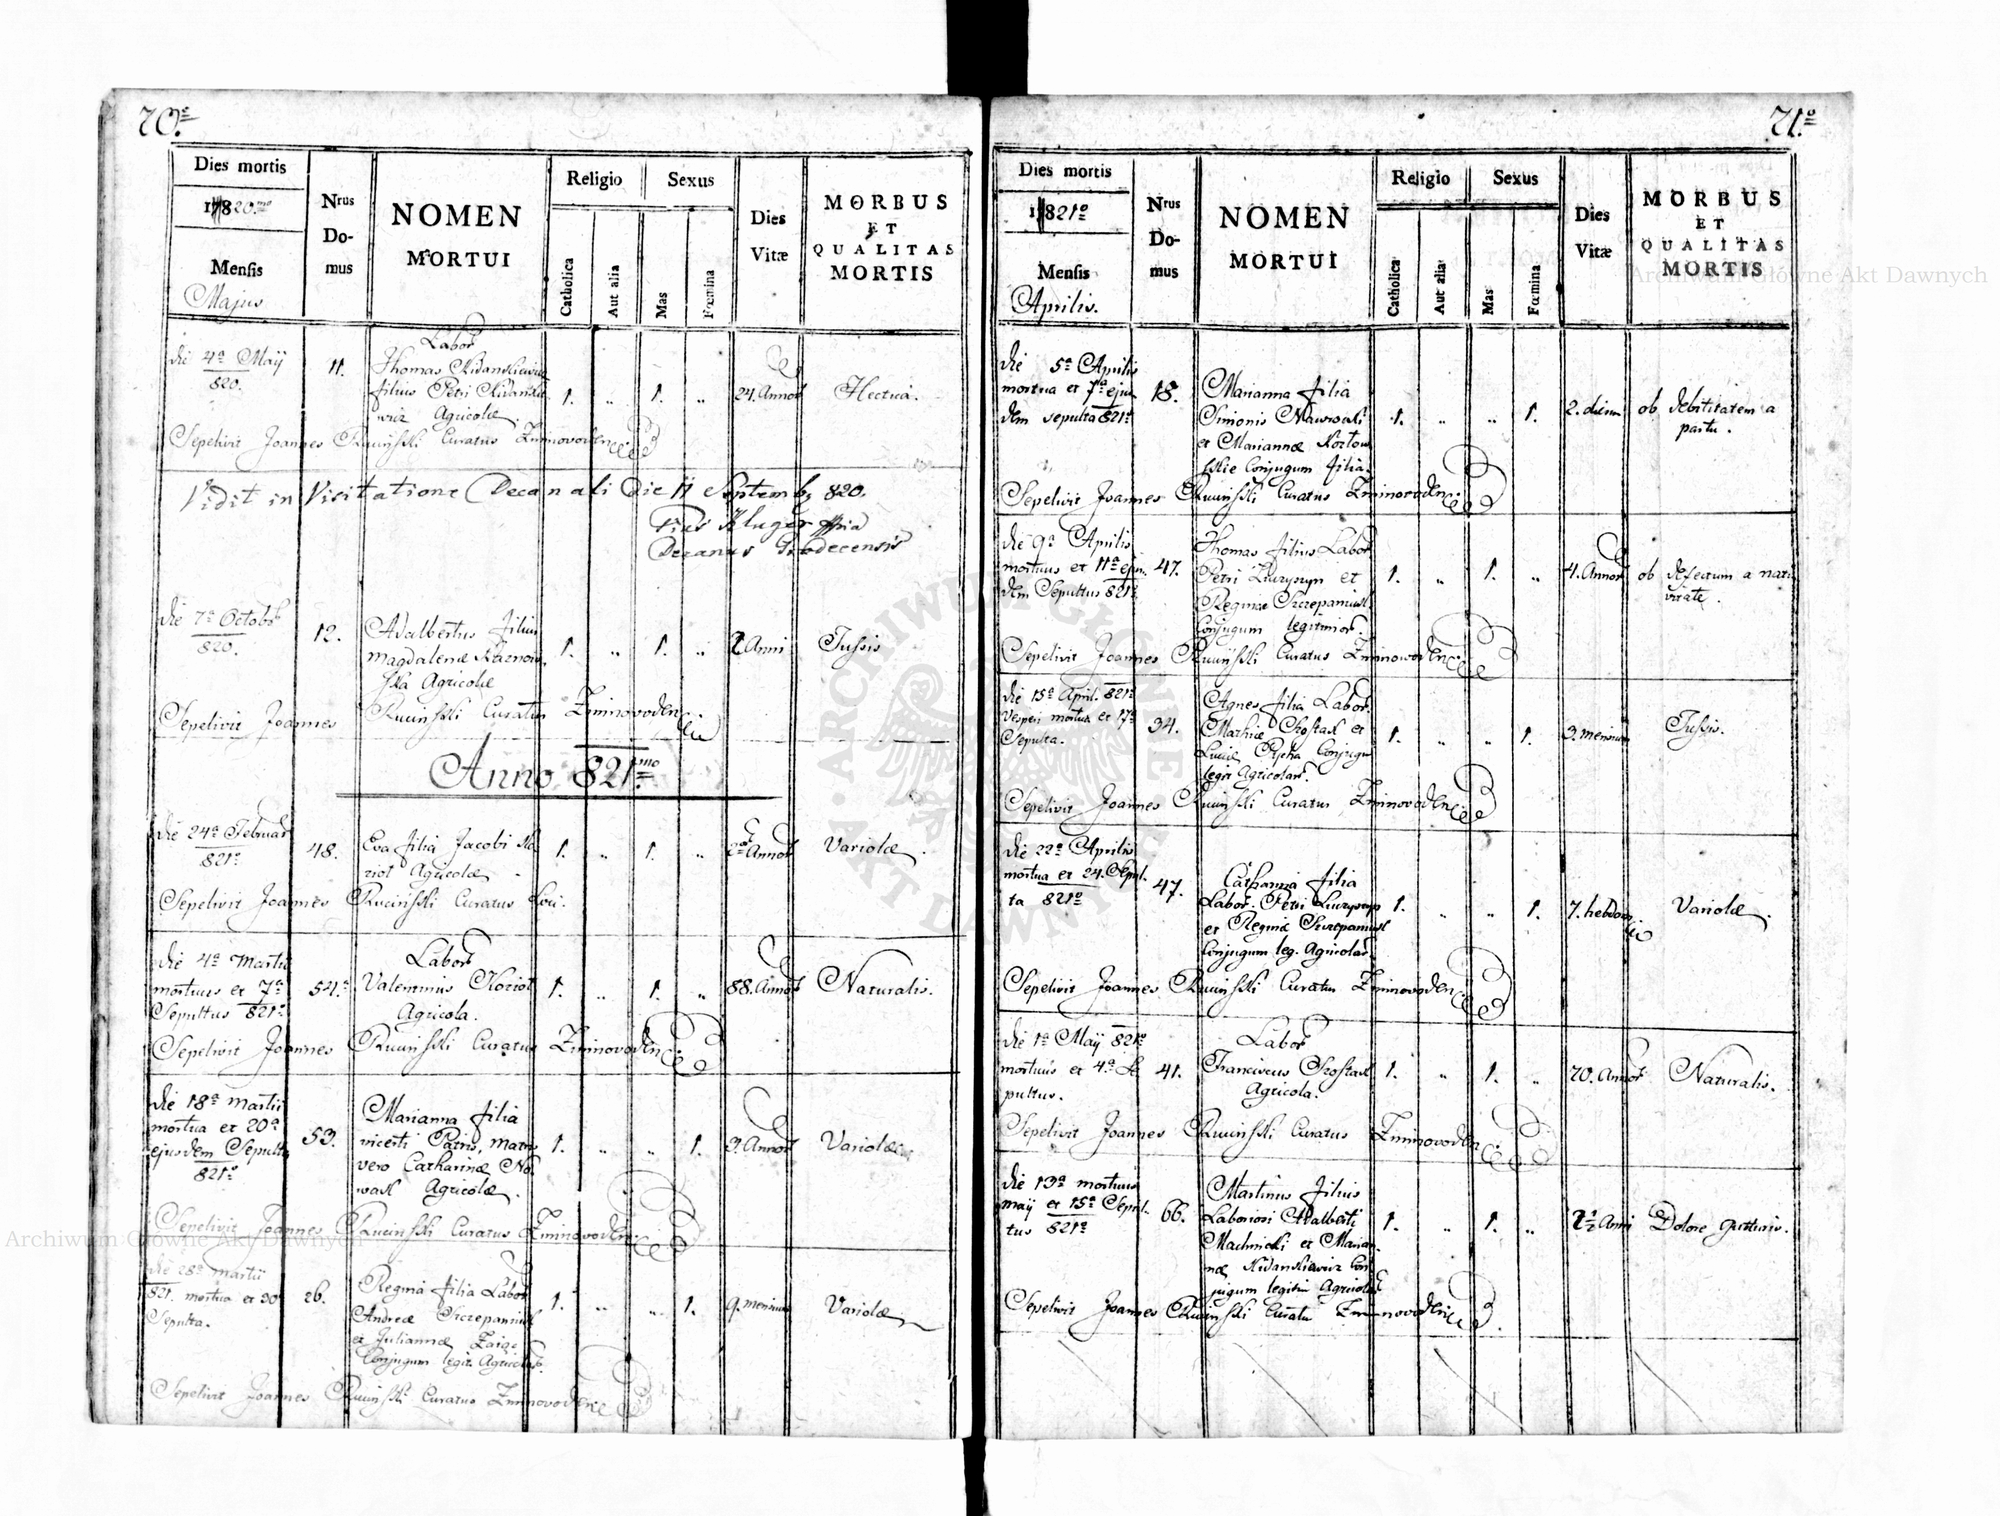 70.
Dies mortis
1820.mo
Mensis
Majus
Nrus
Do-
mus
NOMEN
MORTUI
Religio
Catholica
Aut alia
Sexus
Mas
Fœmina
Dies
Vitæ
MORBUS
ET
QUALITAS
MORTIS
die 4ª Maÿ
820.
11.
Labor
Thomas
filius Petri
Agricolæ
1. „ 1. „
24. Annor
Hectica.
Sepelivit Joannes Ruciński Curatus Zminovodenc
Vidit in Visitatione Decanali die 11 Septemb 820.
Pius Kluger mpria
Decanus Grodecensis
die 7ª Octobr
820.
12.
Adalbertus filius
Magdalenæ
ska Agricolæ
1. „ 1. „
2 Anni
Tussis
Sepelivit Joannes Ruciński Curatus Zminovodenc
Anno 821mo
die 24ª Februar
821º
48.
Eva filia Jacobi Ko
ziol Agricolæ
1. „ 1. „
Annor
Variolæ.
Sepelivit Joannes Ruciński Curatus Loci.
die 4ª Martii
mortuus et 7ª
Sepultus 821º
54.
Labor
Valentinus Koziol
Agricola.
1. „ 1. „
88. Annor
Naturalis.
Sepelivit Joannes Ruciński Curatus Zminovodenc
die 18ª Martii
mortua et 20ª
ejusdem Sepulta
821º
53.
Marianna filia
Patris, Matris
vero Catharinæ No
wak Agricolæ.
1. „ „ 1.
3. Annor
Variolæ
Sepelivit Joannes Ruciński Curatus Zminovodenc
die 28ª Martii
821. mortua et 30
Sepulta.
26.
Regina filia Labor
Andreæ Szczepaniuk
et Juliannæ
Conjugum legit. Agricolar.
1. „ „ 1.
9. mensium
Variolæ
Sepelivit Joannes Ruciński Curatus Zminovodenc
71.º
Dies mortis
1821º
Mensis
Aprilis.
Nrus
Do-
mus
NOMEN
MORTUI
Religio
Catholica
Aut alia
Sexus
Mas
Fœmina
Dies
Vitæ
MORBUS
ET
QUALITAS
MORTIS
die 5ª Aprilis
mortua et 7ª ejus
dem sepulta 821º
18.
Marianna filia
Simonis Nawrocki
et Mariannæ Kozlow
skie Conjugum filia.
1. „ „ 1.
2. dierum
ob debilitatem a
partu.
Sepelivit Joannes Ruciński Curatus Zminovodenc
die 9ª Aprilis
mortuus et 11ª ejus
dem Sepultus 821º
47.
Thomas filius Labor
Petri et
Reginæ Szczepaniuk
Conjugum legitimor.
1. „ 1. „
4. Annor
ob defectum a nati
vitate.
Sepelivit Joannes Ruciński Curatus Zminovodenc
die 15ª April. 821º
Vesperi mortua et 17ª
Sepulta.
34.
Agnes filia Labor.
Mathiæ Szostak et
Luciæ Conjugu
legit Agricolar.
1. „ „ 1.
3. mensium
Tussis.
Sepelivit Joannes Ruciński Curatus Zminovodenc
die 22ª Aprilis
mortua et 24. Sepul
ta 821º
47.
Catharina filia
Labor. Petri
et Reginæ Szczepaniuk
Conjugum leg. Agricolar.
1. „ „ 1.
7. hebdom.
Variolæ.
Sepelivit Joannes Ruciński Curatus Zminovodenc
die 1ª Maÿ 821º
mortuus et 4ª Se
pultus.
41.
Labor
Franciscus Szostak
Agricola.
1. „ 1. „
70. Annor
Naturalis.
Sepelivit Joannes Ruciński Curatus Zminovodenc
die 13ª mortuus
maÿ et 15ª Sepul
tus 821º
66.
Martinus filius
Laboriosi Adalberti
Machnicki et Marian
næ Con
jugum legitim Agricolar
1. „ 1. „
Anni
Dolore gutturis.
Sepelivit Joannes Ruciński Curatus Zminovodenc
Archiwum Główne Akt Dawnych
Archiwum Główne Akt Dawnych
ARCHIWUM GŁÓWNE AKT DAWNYCH